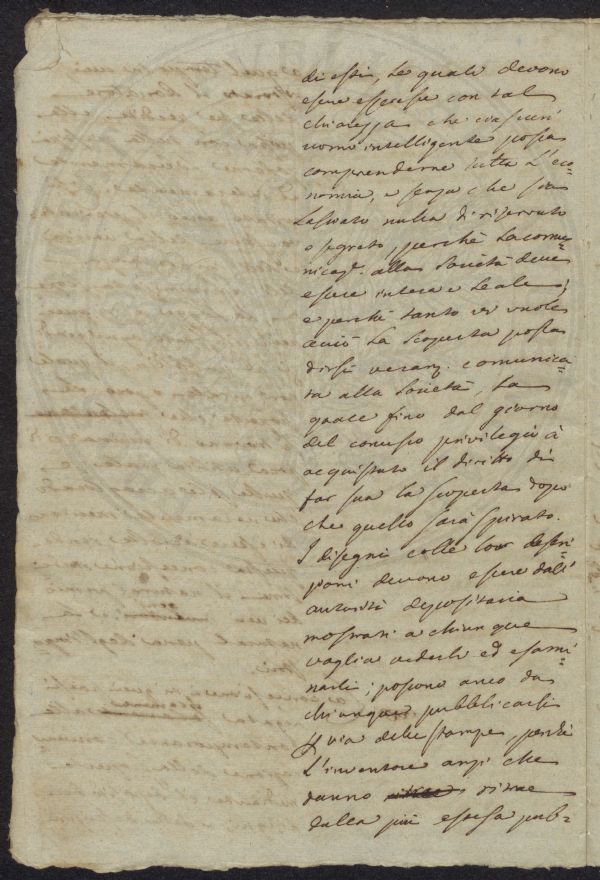 di essi, le quali devono
essere espresse con tal
chiarezza che ciascun
uomo intelligente possa
comprenderne tutta l'eco=
nomia, e senza che sia
lasciato nulla di riservato
o segreto, perchè la comu=
nicaz.e alla Società deve
essere intera e leale;
e perchè tanto vi vuole
acciò la scoperta possa
dirsi veram. comunica=
ta alla Società, la
quale fino dal giorno
del concesso privilegio à
acquistato il diritto di
far sua la scoperta dopo
che quello sarà spirato.
I disegni colle lor descri=
zioni devono essere dall'
autorità depositaria
mostrati a chiunque
voglia vederli ed esami=
narli; possono anco da
chiunque pubblicarsi
p via delle stampe, perchè
l'inventore anzi che
danno risente
dalla più estesa pub=